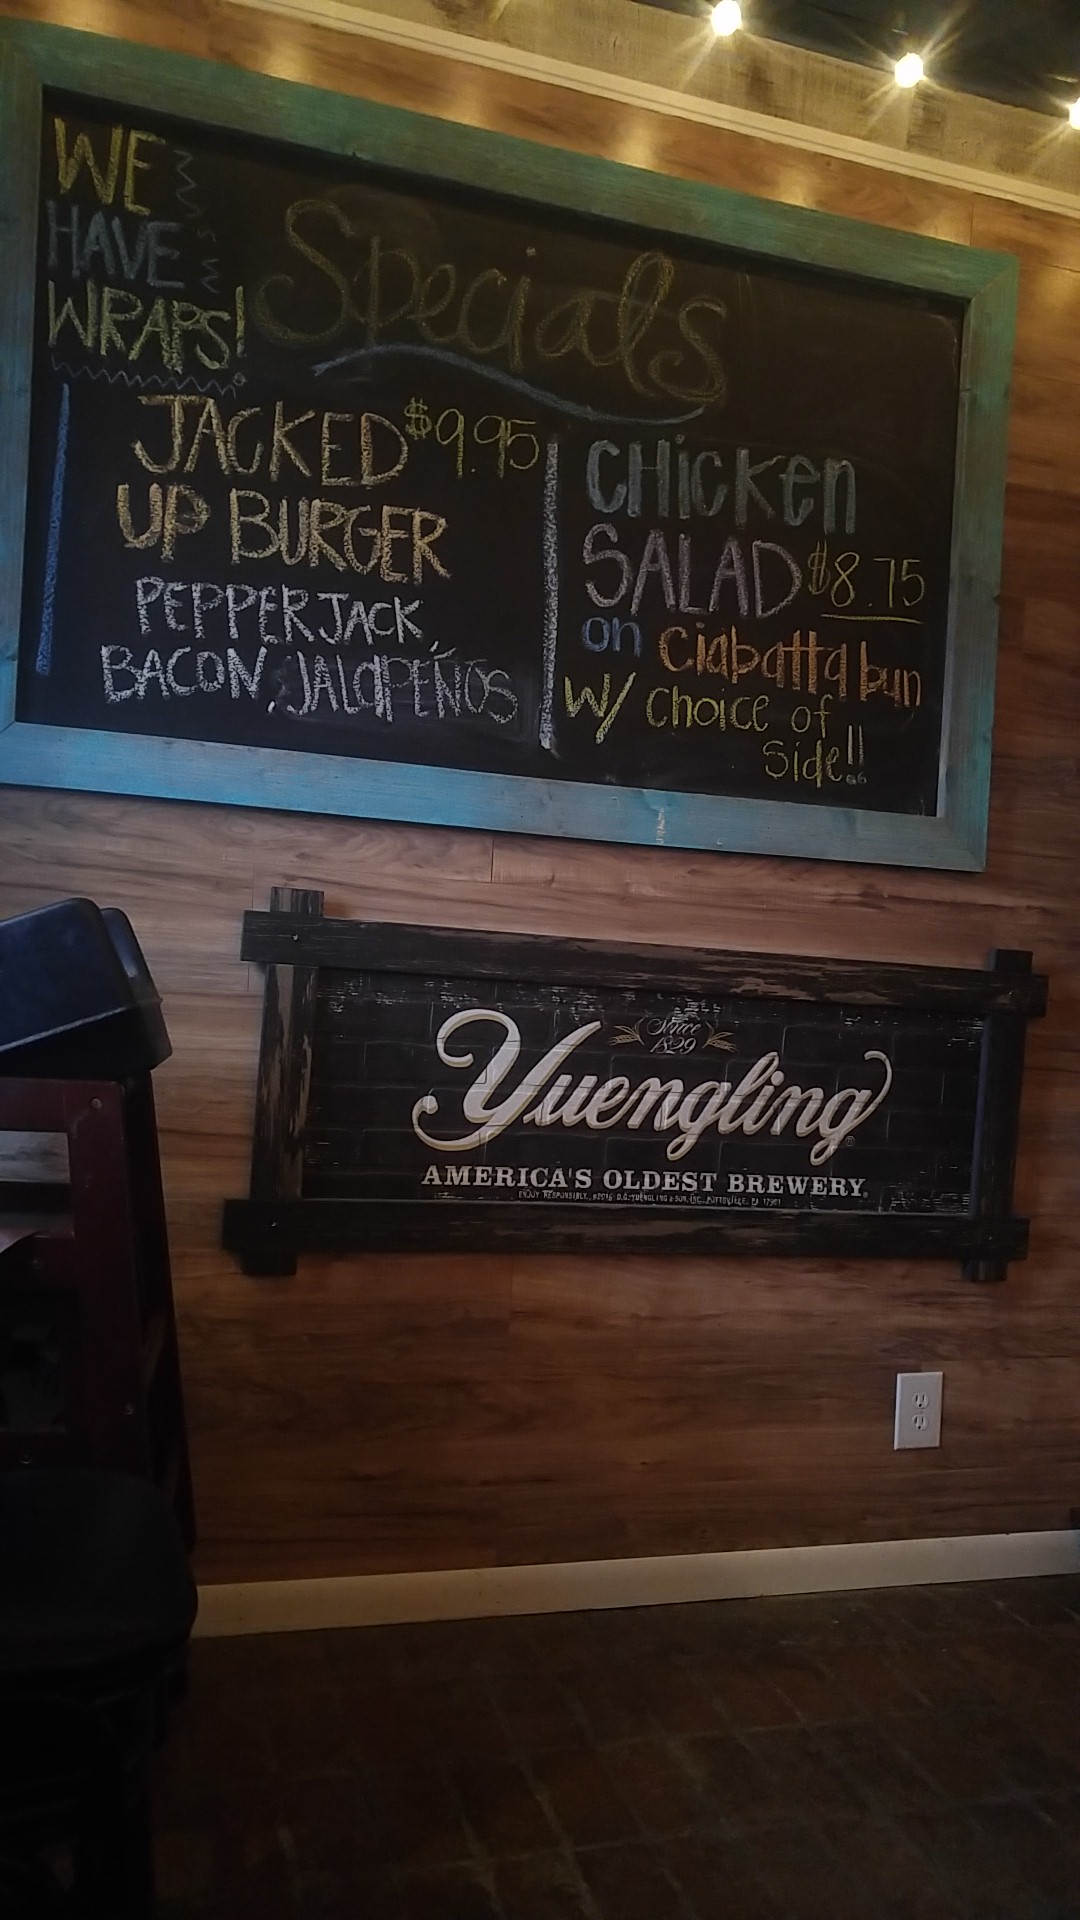 WE
HAVE
WRAPS!
Specials
JACKED $9.95
UP BURGER
PEPPERJACK,
BACON, JALAPEÑOS
CHICKEN
SALAD $8.75
on Ciabatta bun
W/ choice of
side!!
Since
1829
Yuengling®
AMERICA'S OLDEST BREWERY®
ENJOY RESPONSIBLY. ©2016 D.G. YUENGLING & SON, INC., POTTSVILLE, PA 17901